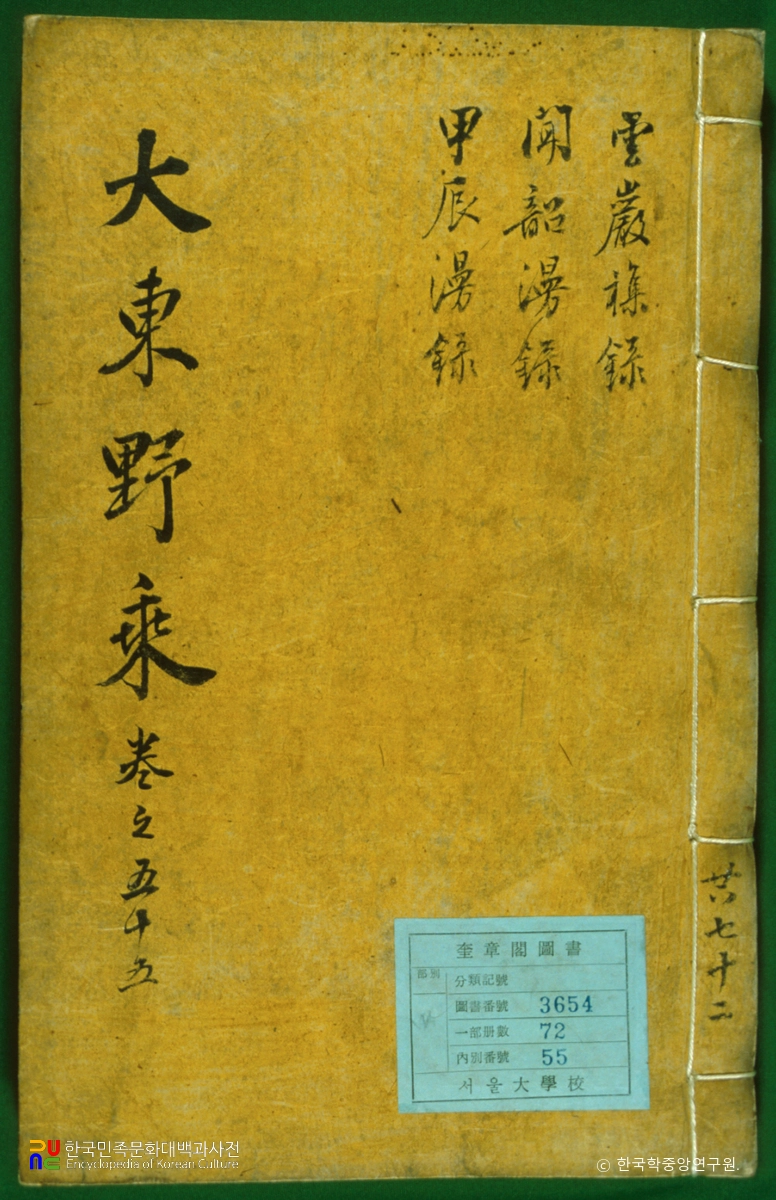 雲巖雜錄
聞韶漫錄
甲辰漫錄
大東野乘 卷之五十五
共七十二
奎章閣圖書
部別
分類記號
圖書番號 3654
一部册數 72
內別番號 55
서울大學校
한국민족문화대백과사전
Encyclopedia of Korean Culture
© 한국학중앙연구원